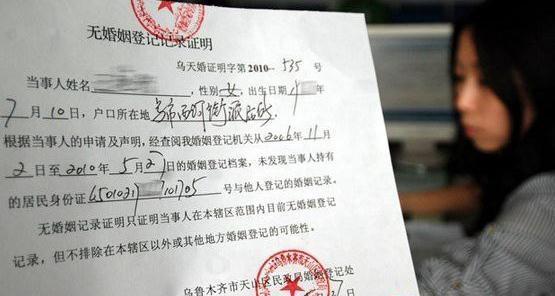 无婚姻登记记录证明
乌天婚证明字第2010--535号
当事人姓名 ，性别女，出生日期 年
7月10日，户口所在地
根据当事人的申请及声明，经查阅我婚姻登记机关从2006年11月
2日至2010年5月27日的婚姻登记档案，未发现当事人持有
的居民身份证 号与他人登记的婚姻记录。
无婚姻记录证明只证明当事人在本辖区范围内目前无婚姻登记
记录，但不排除在本辖区以外或其他地方婚姻登记的可能性。
乌鲁木齐市天山区民政局婚姻登记处
日